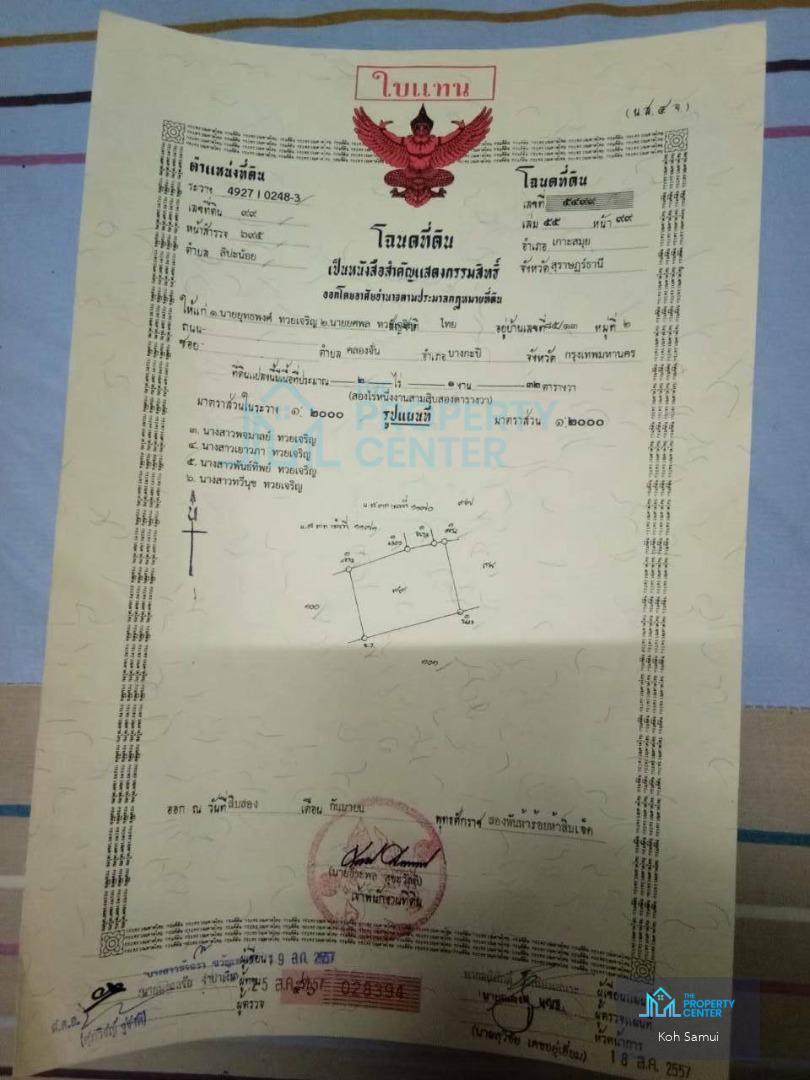 ใบแทน
(น.ส. ๔ จ.)
ตำแหน่งที่ดิน
โฉนดที่ดิน
ระวาง 4927 I 0248-3
เลขที่ ๕๔๙๙
เลขที่ดิน ๙๙
เล่ม ๕๕ หน้า ๙๙
หน้าสำรวจ ๖๙๕
อำเภอ เกาะสมุย
ตำบล ลิปะน้อย
จังหวัด สุราษฎร์ธานี
โฉนดที่ดิน
เป็นหนังสือสำคัญแสดงกรรมสิทธิ์
ออกโดยอาศัยอำนาจตามประมวลกฎหมายที่ดิน
ให้แก่ ๑.นายยุทธพงศ์ ทวยเจริญ ๒.นายยศพล ไทย อยู่บ้านเลขที่ ๘๕/๑๓ หมู่ที่ ๒
ถนน
ซอย ตำบล คลองจั่น อำเภอ บางกะปิ จังหวัด กรุงเทพมหานคร
ที่ดินแปลงนี้มีเนื้อที่ประมาณ ๒ ไร่ ๑ งาน ๓๒ ตารางวา
(สองไร่หนึ่งงานสามสิบสองตารางวา)
มาตราส่วนในระวาง ๑: ๒๐๐๐ รูปแผนที่ มาตราส่วน ๑:๒๐๐๐
๓. นางสาวพจมาลย์ ทวยเจริญ
๔. นางสาวเยาวภา ทวยเจริญ
๕. นางสาวพันธ์ทิพย์ ทวยเจริญ
๖. นางสาวทวีนุช ทวยเจริญ
THE PROPERTY CENTER
น
๙๙
ออก ณ วันที่ สิบสอง เดือน กันยายน พุทธศักราช สองพันห้าร้อยห้าสิบเจ็ด
เจ้าพนักงานที่ดิน
ผู้เขียน 19 ส.ค. 2557
25 ส.ค. 2557
028394
ผู้ตรวจ
ผู้เขียนแผนที่
ผู้ตรวจแผนที่
หัวหน้าการ
18 ส.ค. 2557
THE PROPERTY CENTER
Koh Samui